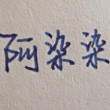 阿染染